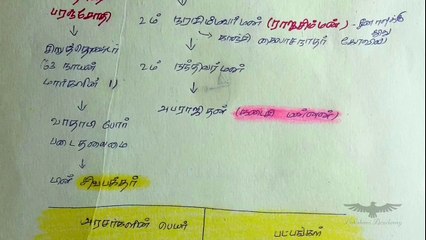 பரஞ்சோதி
↓
சிறுத்தொண்டர்
(63 நாயன்
மார்களின் 1)
↓
வாதாபி போர்
படைத்தலைமை
↓
பின் சிவபக்தர்
2ம் நரசிம்மவர்மன் (ராஜசிம்மன்) -
→ காஞ்சி கைலாசநாதர் கோவில்
2ம் நந்திவர்மன்
↓
அபராஜிதன் (கடைசி மன்னன்)
அரசர்களின் பெயர்
பட்டங்கள்